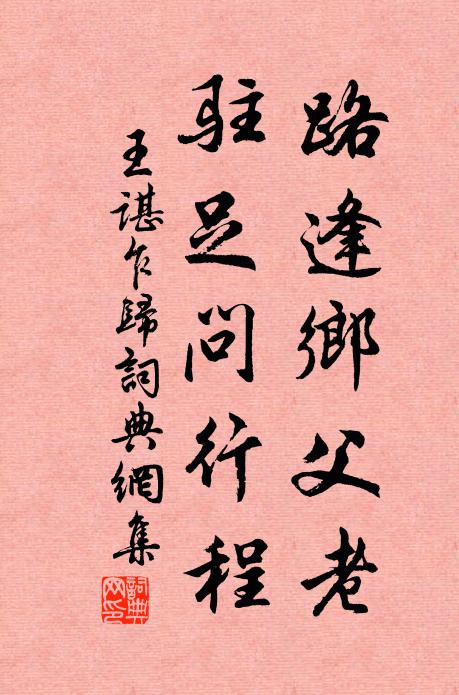 路逢鄉父老
駐足問行程
王諶乍歸詞典網集
詞典
网印